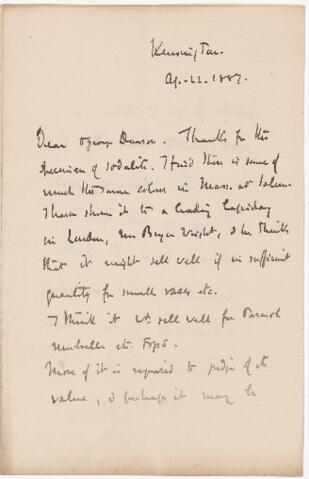 Kensington.
Ap. 22. 1887.
Dear George Dawson. Thanks for the
specimen of sodalite. I find there is some of
much the same colour in Mass. at Salem.
I have shown it to a leading Lapidary
in London, Mr Wright, & he thinks
that it might sell well if in sufficient
quantity for small vases etc.
I think it wd sell well for Parasol
umbrella etc. tops.
More of it is required to judge of its
value, & perhaps it may be